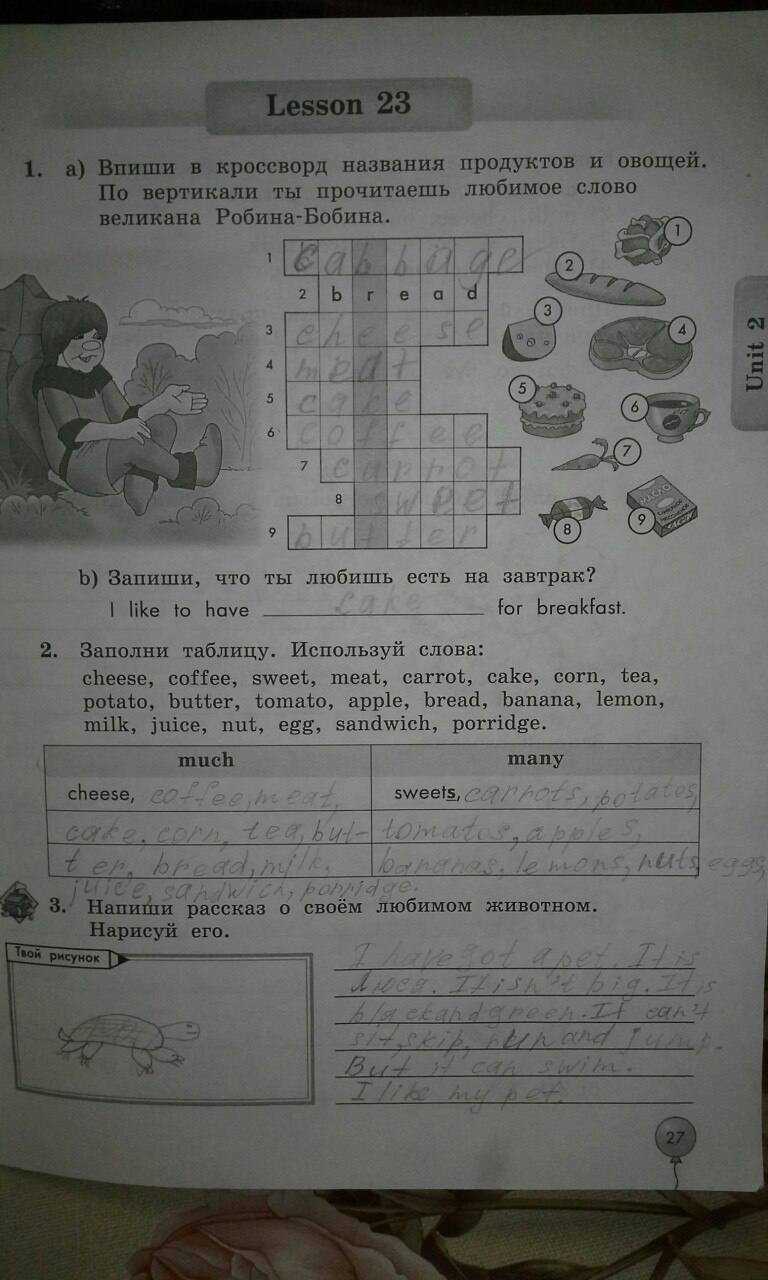 Lesson 23
1. a) Впиши в кроссворд названия продуктов и овощей.
По вертикали ты прочитаешь любимое слово
великана Робина-Бобина.
1 cabbage
2 bread
3 cheese
4 meat
5 cake
6 coffee
7 carrot
8 sweet
9 butter
1
2
3
4
5
6
7
8
9
МАСЛО
Unit 2
b) Запиши, что ты любишь есть на завтрак?
I like to have cake for breakfast.
2. Заполни таблицу. Используй слова:
cheese, coffee, sweet, meat, carrot, cake, corn, tea,
potato, butter, tomato, apple, bread, banana, lemon,
milk, juice, nut, egg, sandwich, porridge.
much many
cheese, coffee, meat, sweets, carrots, potatos,
cake, corn, tea, but- tomatos, apples,
ter, bread, milk, bananas, lemons, nuts, eggs,
juice, sandwich, porridge.
3. Напиши рассказ о своём любимом животном.
Нарисуй его.
Твой рисунок
I have got a pet. It is
Люся. It isn't big. It is
black and green. It can't
sit, skip, run and jump.
But it can swim.
I like my pet.
27